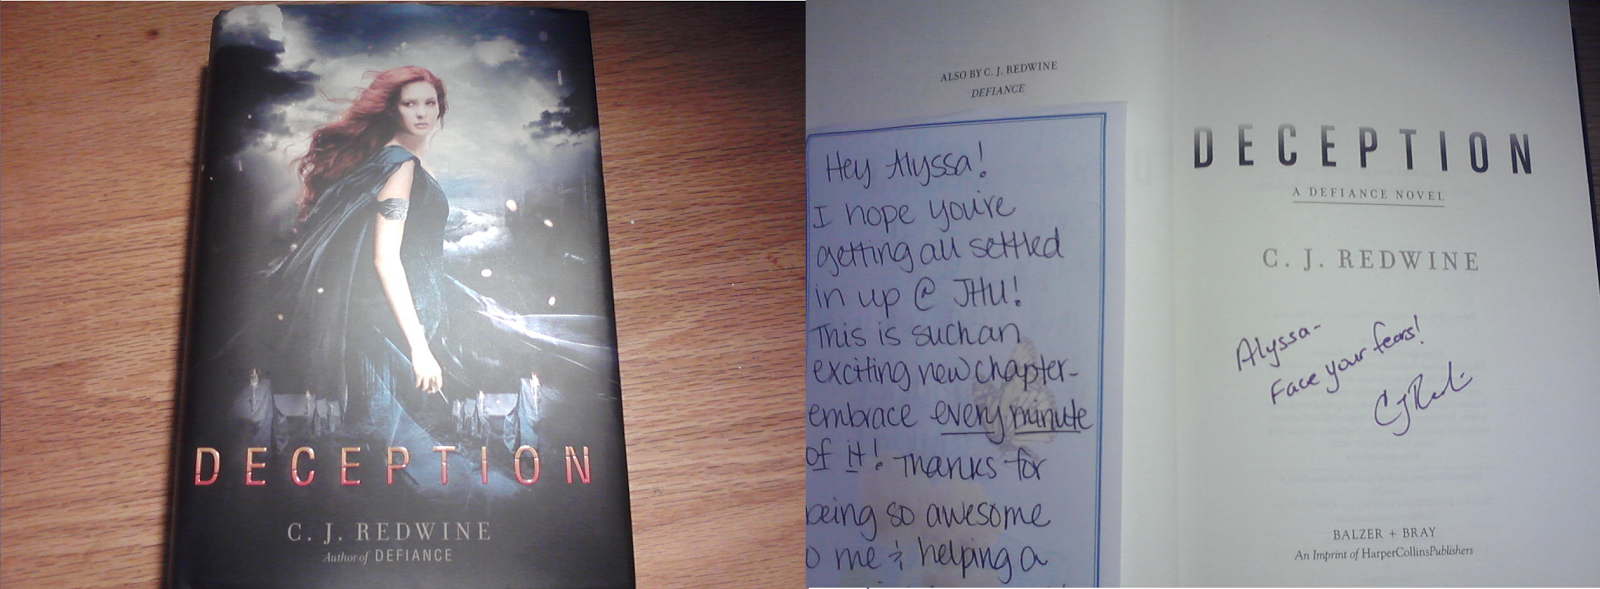 DECEPTION
C. J. REDWINE
Author of DEFIANCE
ALSO BY C. J. REDWINE
DEFIANCE
Hey Alyssa!
I hope you're
getting all settled
in up @ JHU!
This is such an
exciting new chapter-
embrace every minute
of it! Thanks for
being so awesome
o me & helping a
DECEPTION
A DEFIANCE NOVEL
C. J. REDWINE
Alyssa-
Face your fears!
CJ Redwine
BALZER + BRAY
An Imprint of HarperCollinsPublishers